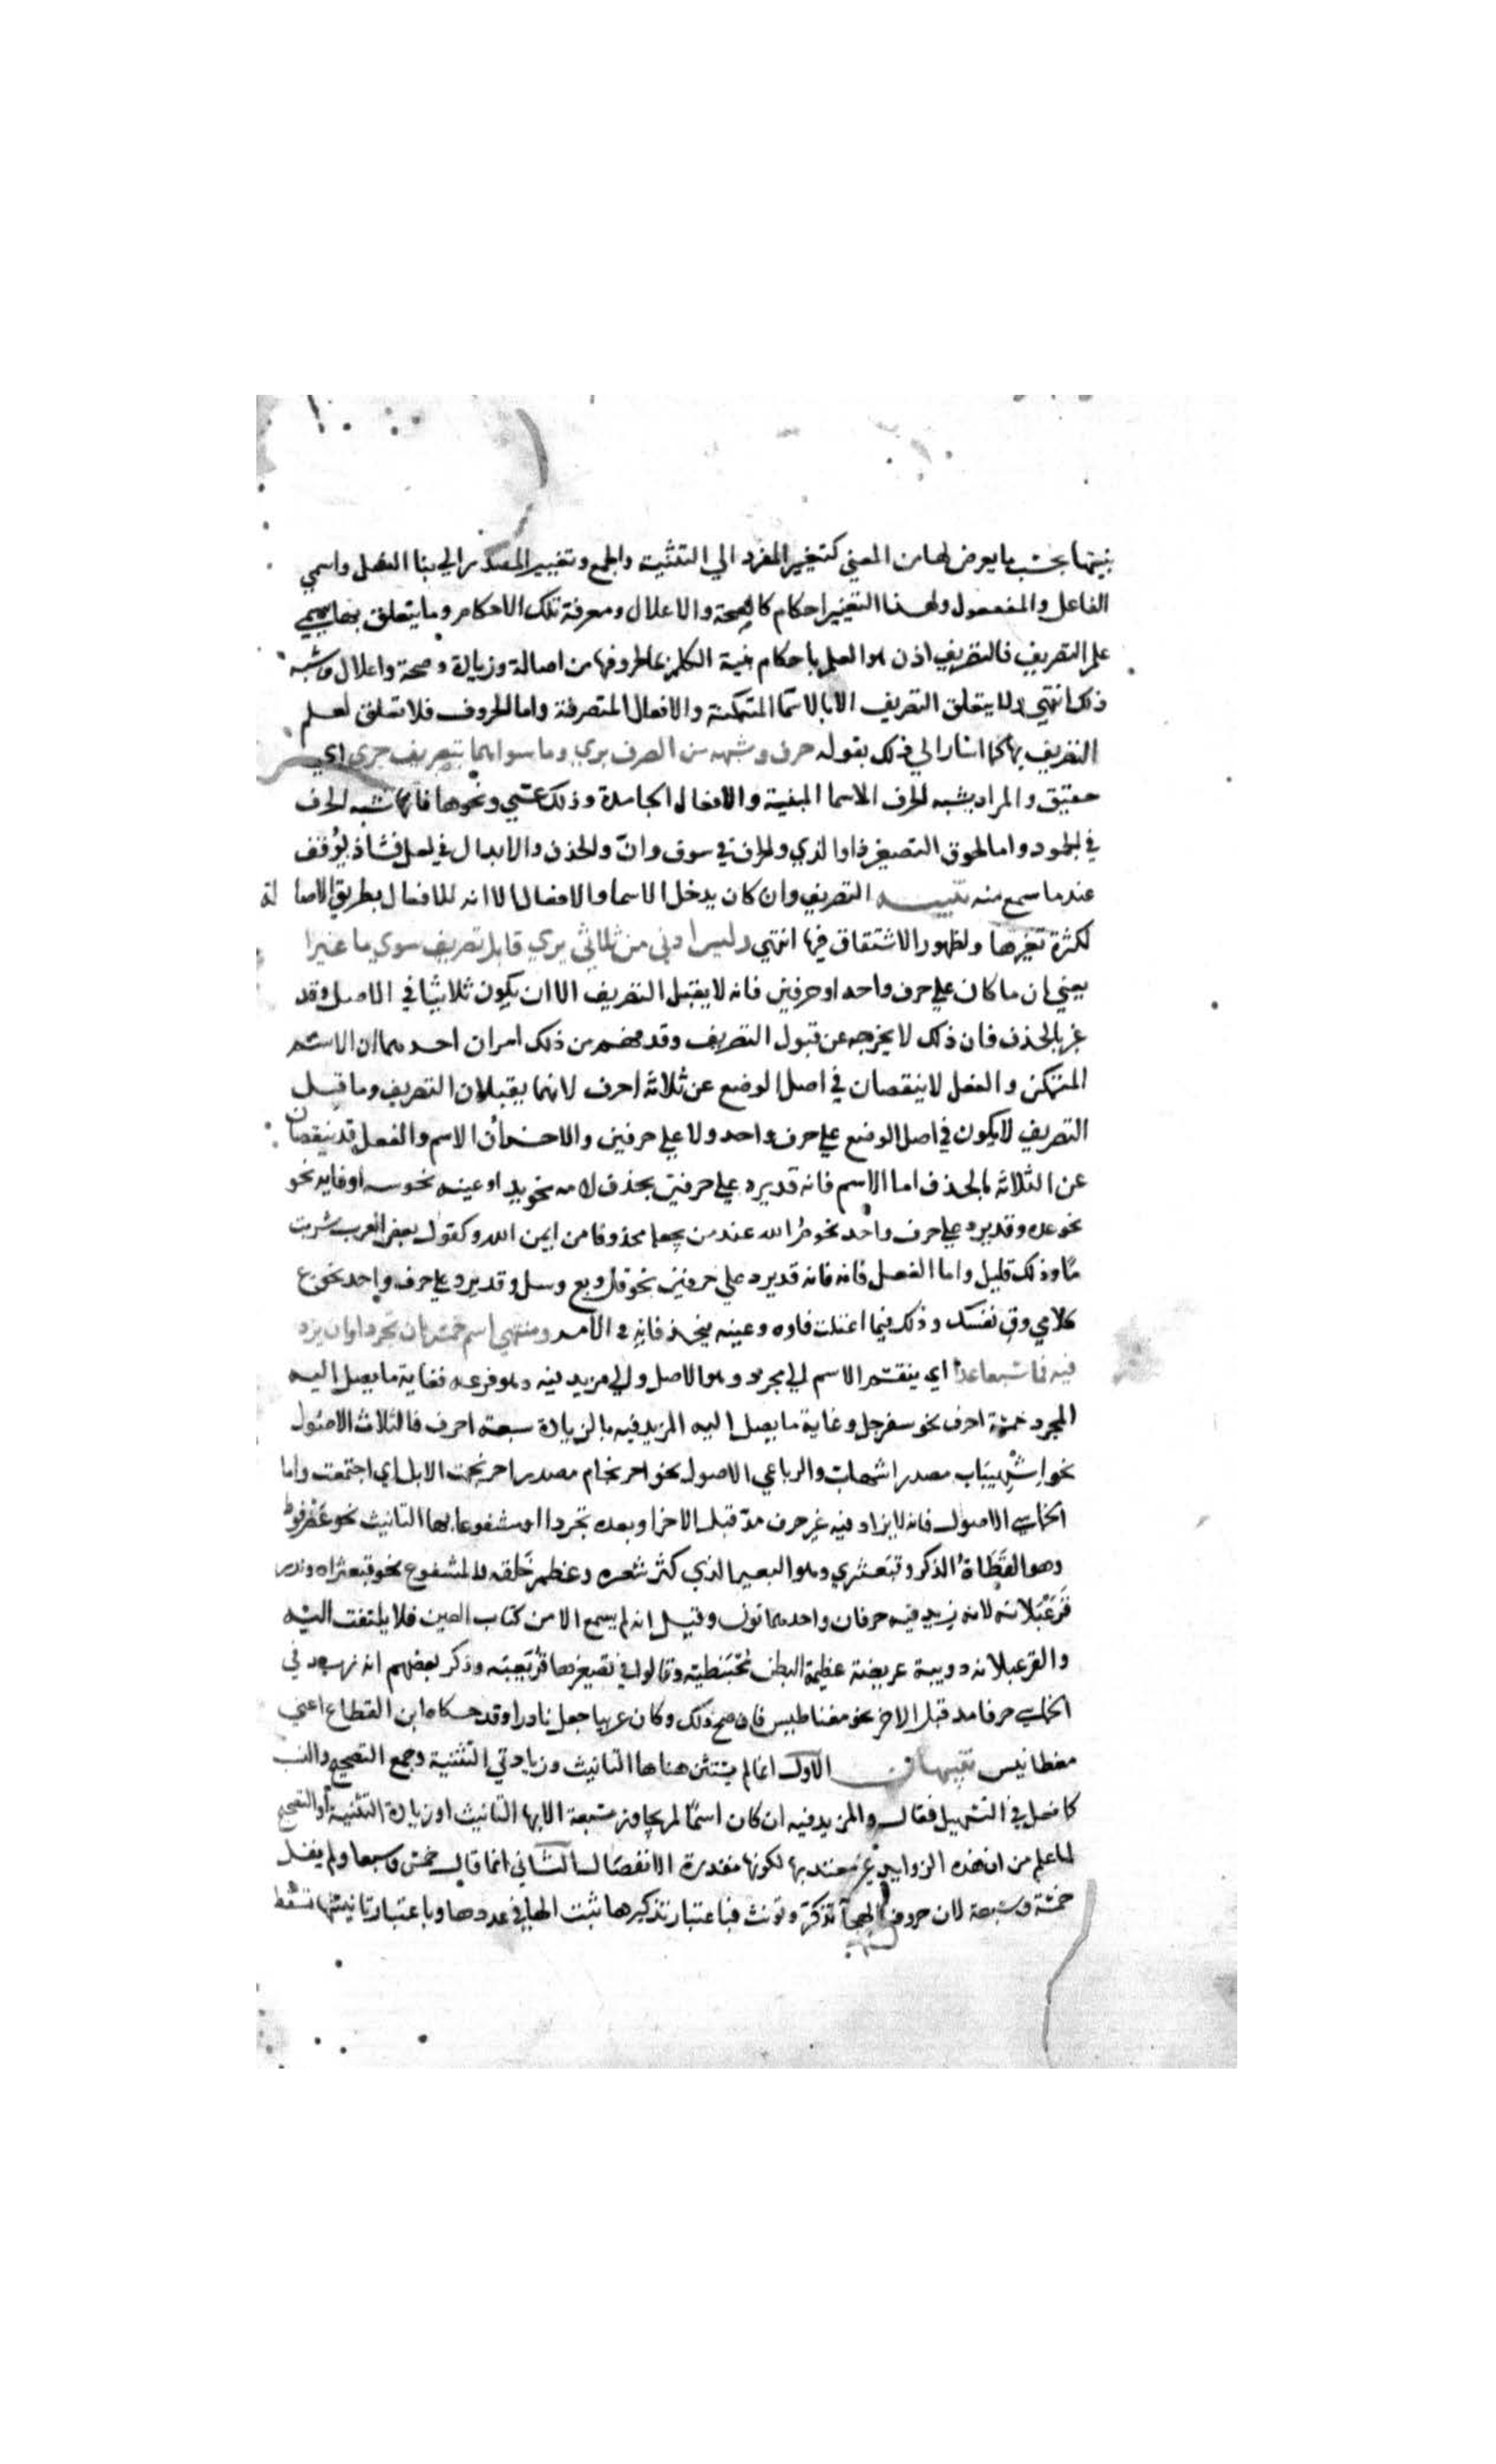 بنيتها بحسب ما يعرض لها من المعني كتغيير المفرد الي التثنية والجمع وتغيير المصدر الي بنا الفعل واسمي
الفاعل والمفعول ولهذا التغيير احكام كالصحة والاعلال ومعرفة تلك الاحكام وما يتعلق بها يسمي
علم التصريف فالتصريف اذن هو العلم باحكام بنية الكلمة بما لحروفها من اصالة وزيادة وصحة واعلال وشبه
ذلك انتهي ولا يتعلق التصريف الا بالاسما المتمكنة والافعال المتصرفة واما الحروف فلا تعلق لعلم
التصريف بها كما اشار الي ذلك بقوله حرف وشبهه من الصرف بري وما سواهما بتصريف حري اي
حقيق والمراد بشبه الحرف الاسما المبنية والافعال الجامدة وذلك عسي ونحوها فانها تشبه الحرف
في الجمود واما لحوق التصغير ذا والذي والحذف في سوف وان والحذف والابدال في لعل فشاذ يوقف
عند ما سمع منه تنبيه التصريف وان كان يدخل الاسما والافعال الا انه للافعال بطريق الاصالة
لكثرة تغيرها ولظهور الاشتقاق فيها انتهي وليس ادني من ثلاثي يري قابل تصريف سوي ما غيرا
يعني ان ما كان علي حرف واحد او حرفين فانه لا يقبل التصريف الا ان يكون ثلاثيا في الاصل وقد
غير بالحذف فان ذلك لا يخرجه عن قبول التصريف وقد فهم من ذلك امران احدهما ان الاسم
المتمكن والفعل لا ينقصان في اصل الوضع عن ثلاثة احرف لانهما يقبلان التصريف وما قبل
التصريف لا يكون في اصل الوضع علي حرف واحد ولا علي حرفين والاخر ان الاسم والفعل قد ينقصان
عن الثلاثة بالحذف اما الاسم فانه قد يرد علي حرفين بحذف لامه نحو يد او عينه نحو سه او فايه نحو
نحو عده وقد يرد علي حرف واحد نحو مُ الله عند من يجعله محذوفا من ايمن الله وكقول بعض العرب شربت
مًا وذلك قليل واما الفعل فانه فانه قد يرد علي حرفين نحو قل وبع وسل وقد يرد علي حرف واحد نحو ع
كلامي وق نفسك وذلك فيما اعتلت فاوه وعينه فيحذفانه في الامر ومنتهي اسم خمس ان تجردا وان يزد
فيه فما سبعا عدا اي ينقسم الاسم الي مجرد وهو الاصل والي مزيد فيه وهو فرعه فغاية ما يصل اليه
المجرد خمسة احرف نحو سفرجل وغاية ما يصل اليه المزيد فيه بالزيادة سبعة احرف فالثلاث الاصول
نحو اشهيباب مصدر اشهاب والرباعي الاصول نحو احرنجام مصدر احرنجمت الابل اي اجتمعت واما
الخماسي الاصول فانه لا يزاد فيه غير حرف مد قبل الاخر او بعده تجردا او مشفوعا بها التانيث نحو عضرفوط
وهو العظاة الذكر وقبعثري وهو البعير الذي كثر شعره وعظم خلقه والمشفوع نحو قبعثراه وندر
قرعبلانه لانه زيد فيه حرفان واحدهما نون وقيل انه لم يسمع الا من كتاب العين فلا يلتفت اليه
والقرعبلانه دويبة عريضة عظيمة البطن محبنطية وقالوا في تصغيرها قريعبه وذكر بعضهم انه زيد في
الخماسي حرفا مد قبل الاخر نحو مغناطيس فان صح ذلك وكان عربيا جعل نادرا وقد حكاه ابن القطاع اعني
مغطانيس تنبيهان الاول انما لم يستثن هنا ها التانيث وزيادتي التثنية وجمع التصحيح والنسب
كما فعل في التسهيل فقال والمزيد فيه ان كان اسما لم يجاوز سبعة الا بها التانيث او زيادة التثنية او التصحيح
لما علم من ان هذه الزوايد غير معتد بها لكونها مقدرة الانفصال الثاني انما قال خمس وسبعا ولم يقل
خمسة وسبعة لان حروف الهجآ تذكر وتونث فباعتبار تذكيرها تثبت الها في عددها وباعتبار تانيثها تسقط